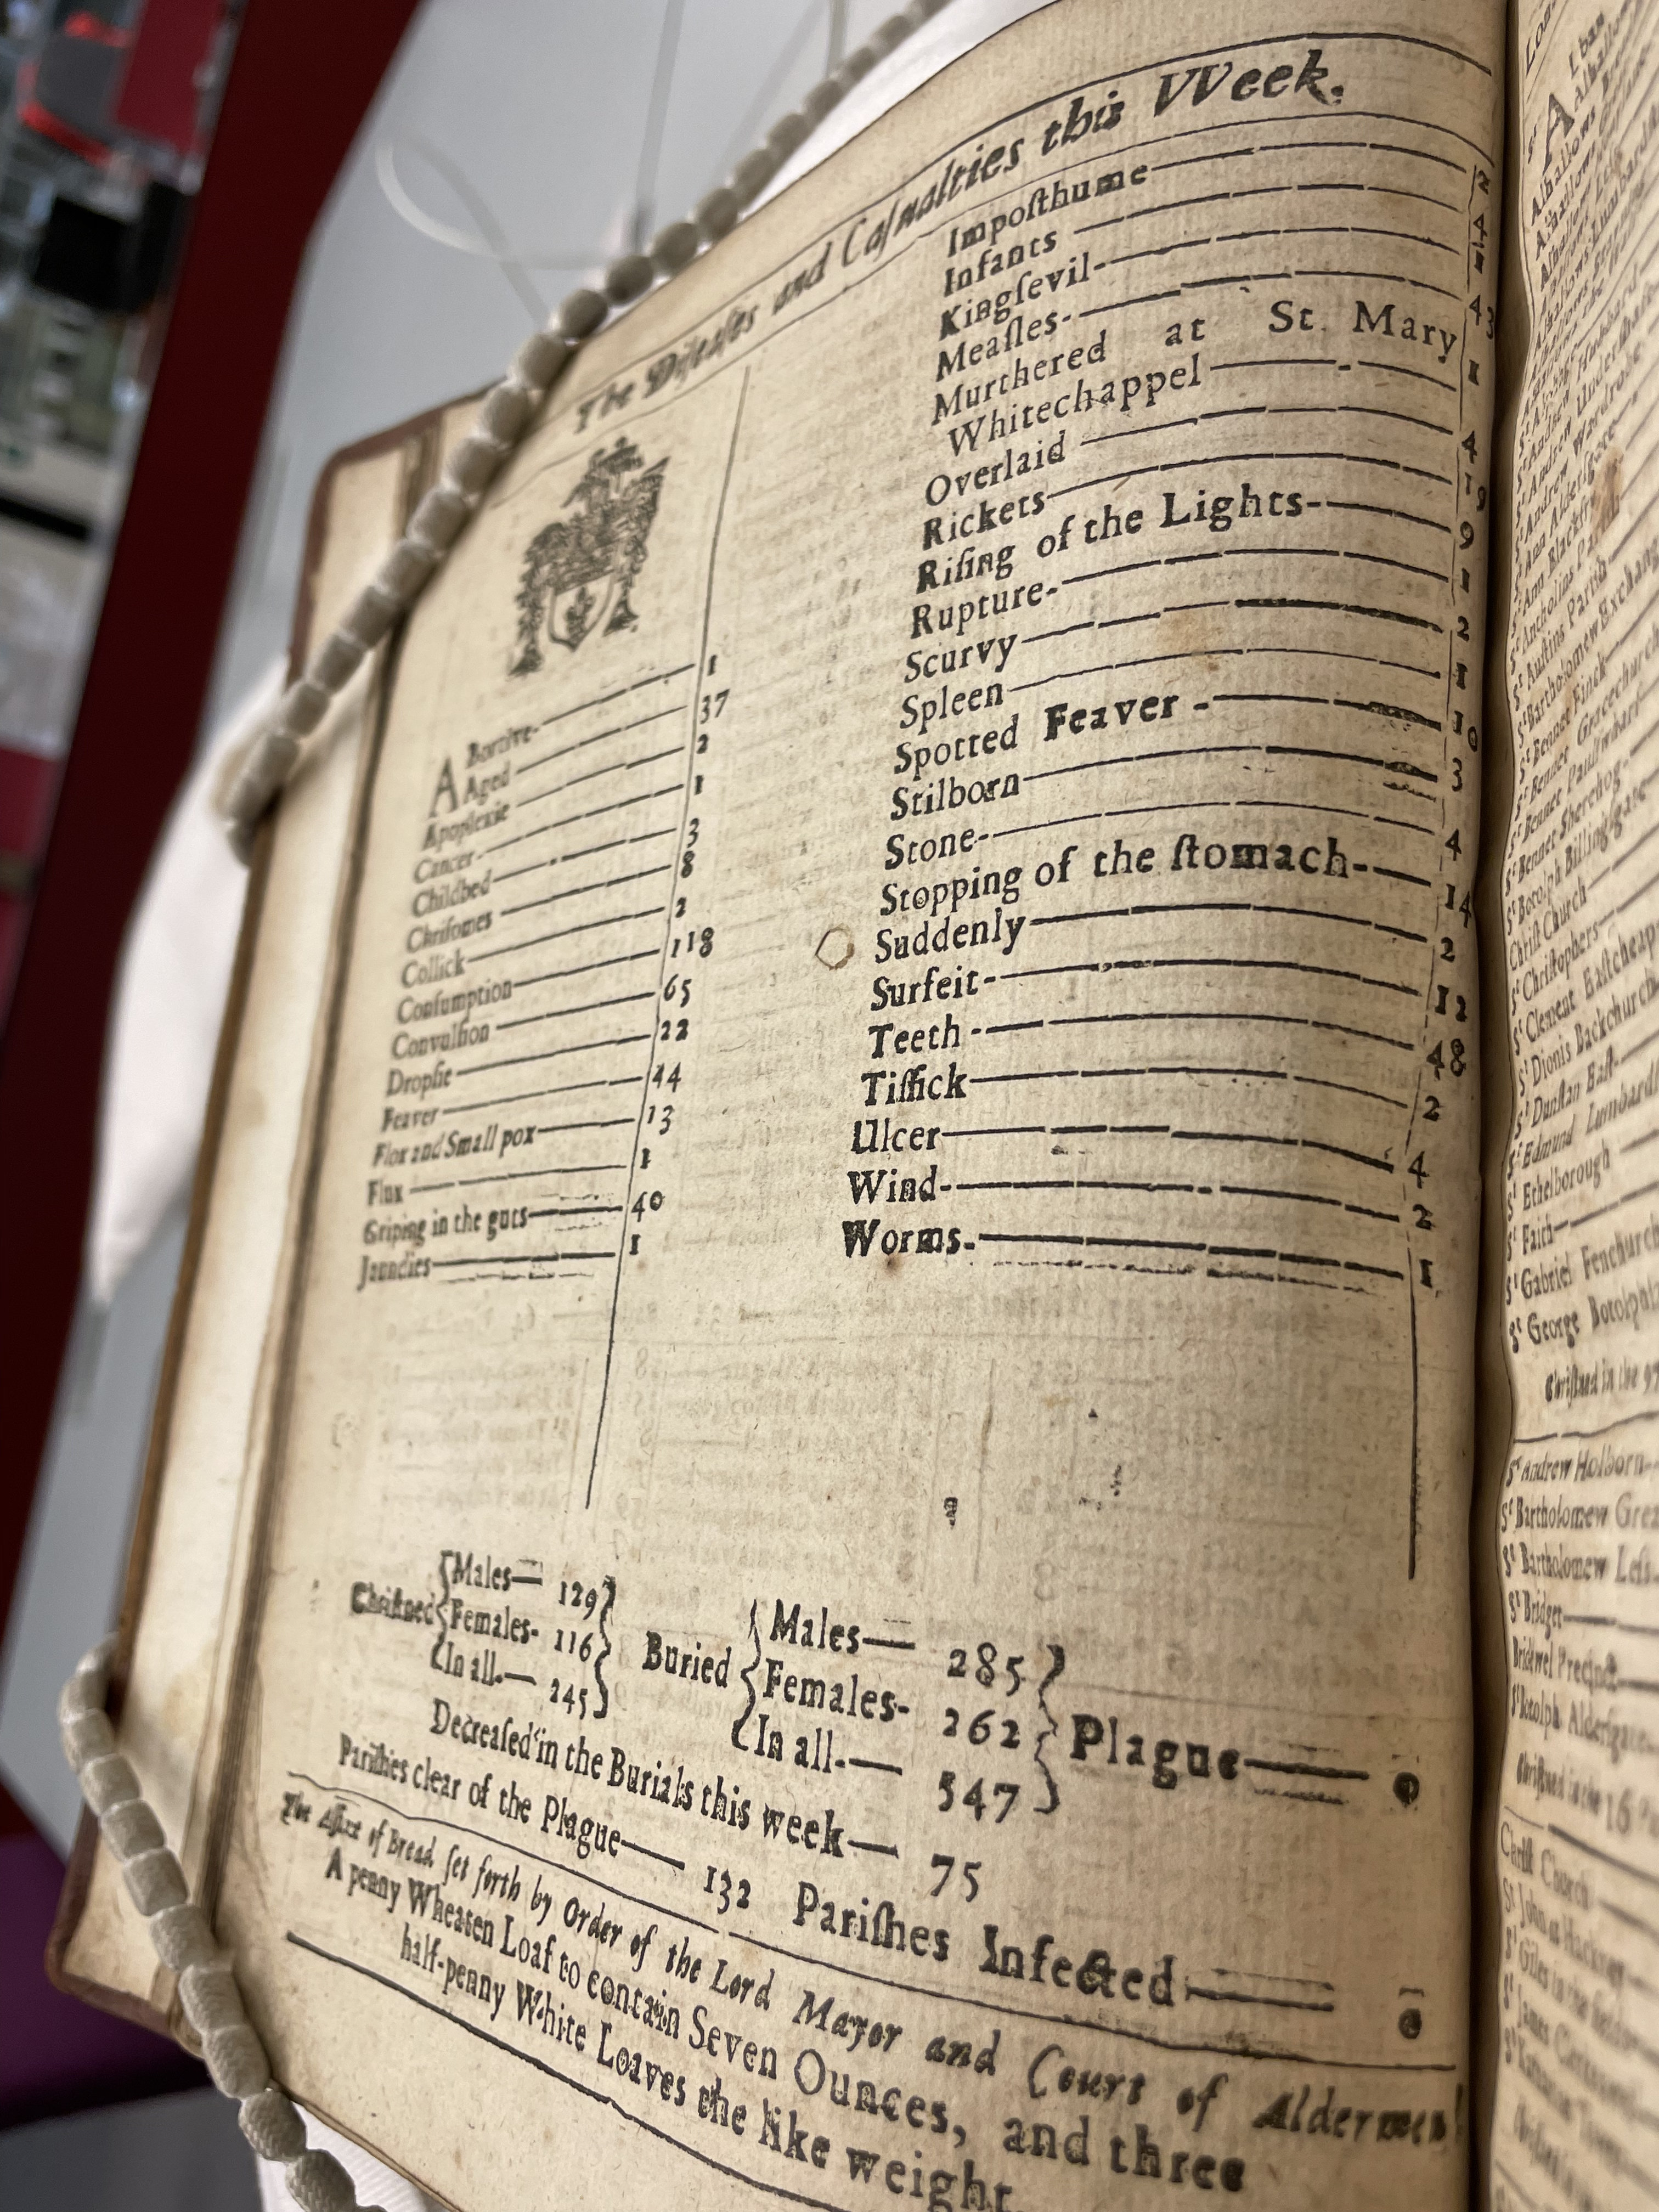 The Diseases and Casualties this VVeek.
ABortive- 1
Aged 37
Apoplexie 2
Cancer- 1
Childbed 3
Chrisomes 8
Collick 2
Consumption 118
Convulsion 65
Dropsie 22
Feaver 44
Flox and Small pox 13
Flux 1
Griping in the guts 40
Jaundies 1
Imposthume 2
Infants 4
Kingsevil- 1
Measles- 43
Murthered at St. Mary
Whitechappel 1
Overlaid 4
Rickets 19
Rising of the Lights- 9
Rupture- 1
Scurvy 2
Spleen 1
Spotted Feaver - 10
Stilborn 3
Stone- 4
Stopping of the stomach- 14
Suddenly 2
Surfeit- 12
Teeth - 48
Tissick 2
Ulcer 4
Wind- 2
Worms. 1
Christned Males— 129
Females- 116
In all.— 245
Buried Males— 285
Females- 262
In all.— 547
Plague— 0
Decreased in the Burials this week— 75
Parishes clear of the Plague— 132 Parishes Infected— 0
The Assize of Bread set forth by Order of the Lord Mayor and Court of Aldermen
A penny Wheaten Loaf to contain Seven Ounces, and three
half-penny White Loaves the like weight.
St Austins Parish
St Bartholomew Exchange
St Bennet Finck
St Bennet Gracechurch
St Bennet Sherehog
St Botolph Billingsgate
Christ Church
St Christophers
St Clement Eastcheap
St Dionis Backchurch
St Dunstan East
St Edmund Lumbard
St Ethelborough
St Faith
St Gabriel Fenchurch
St George Botolph
Christned in the 97
St Andrew Holborn
St Bartholomew Grea
St Bartholomew Less
St Bridget
Bridwel Precinct
St Botolph Aldersgate
Christned in the 16
Christ Church
St John at Hackney
St Giles in the fields